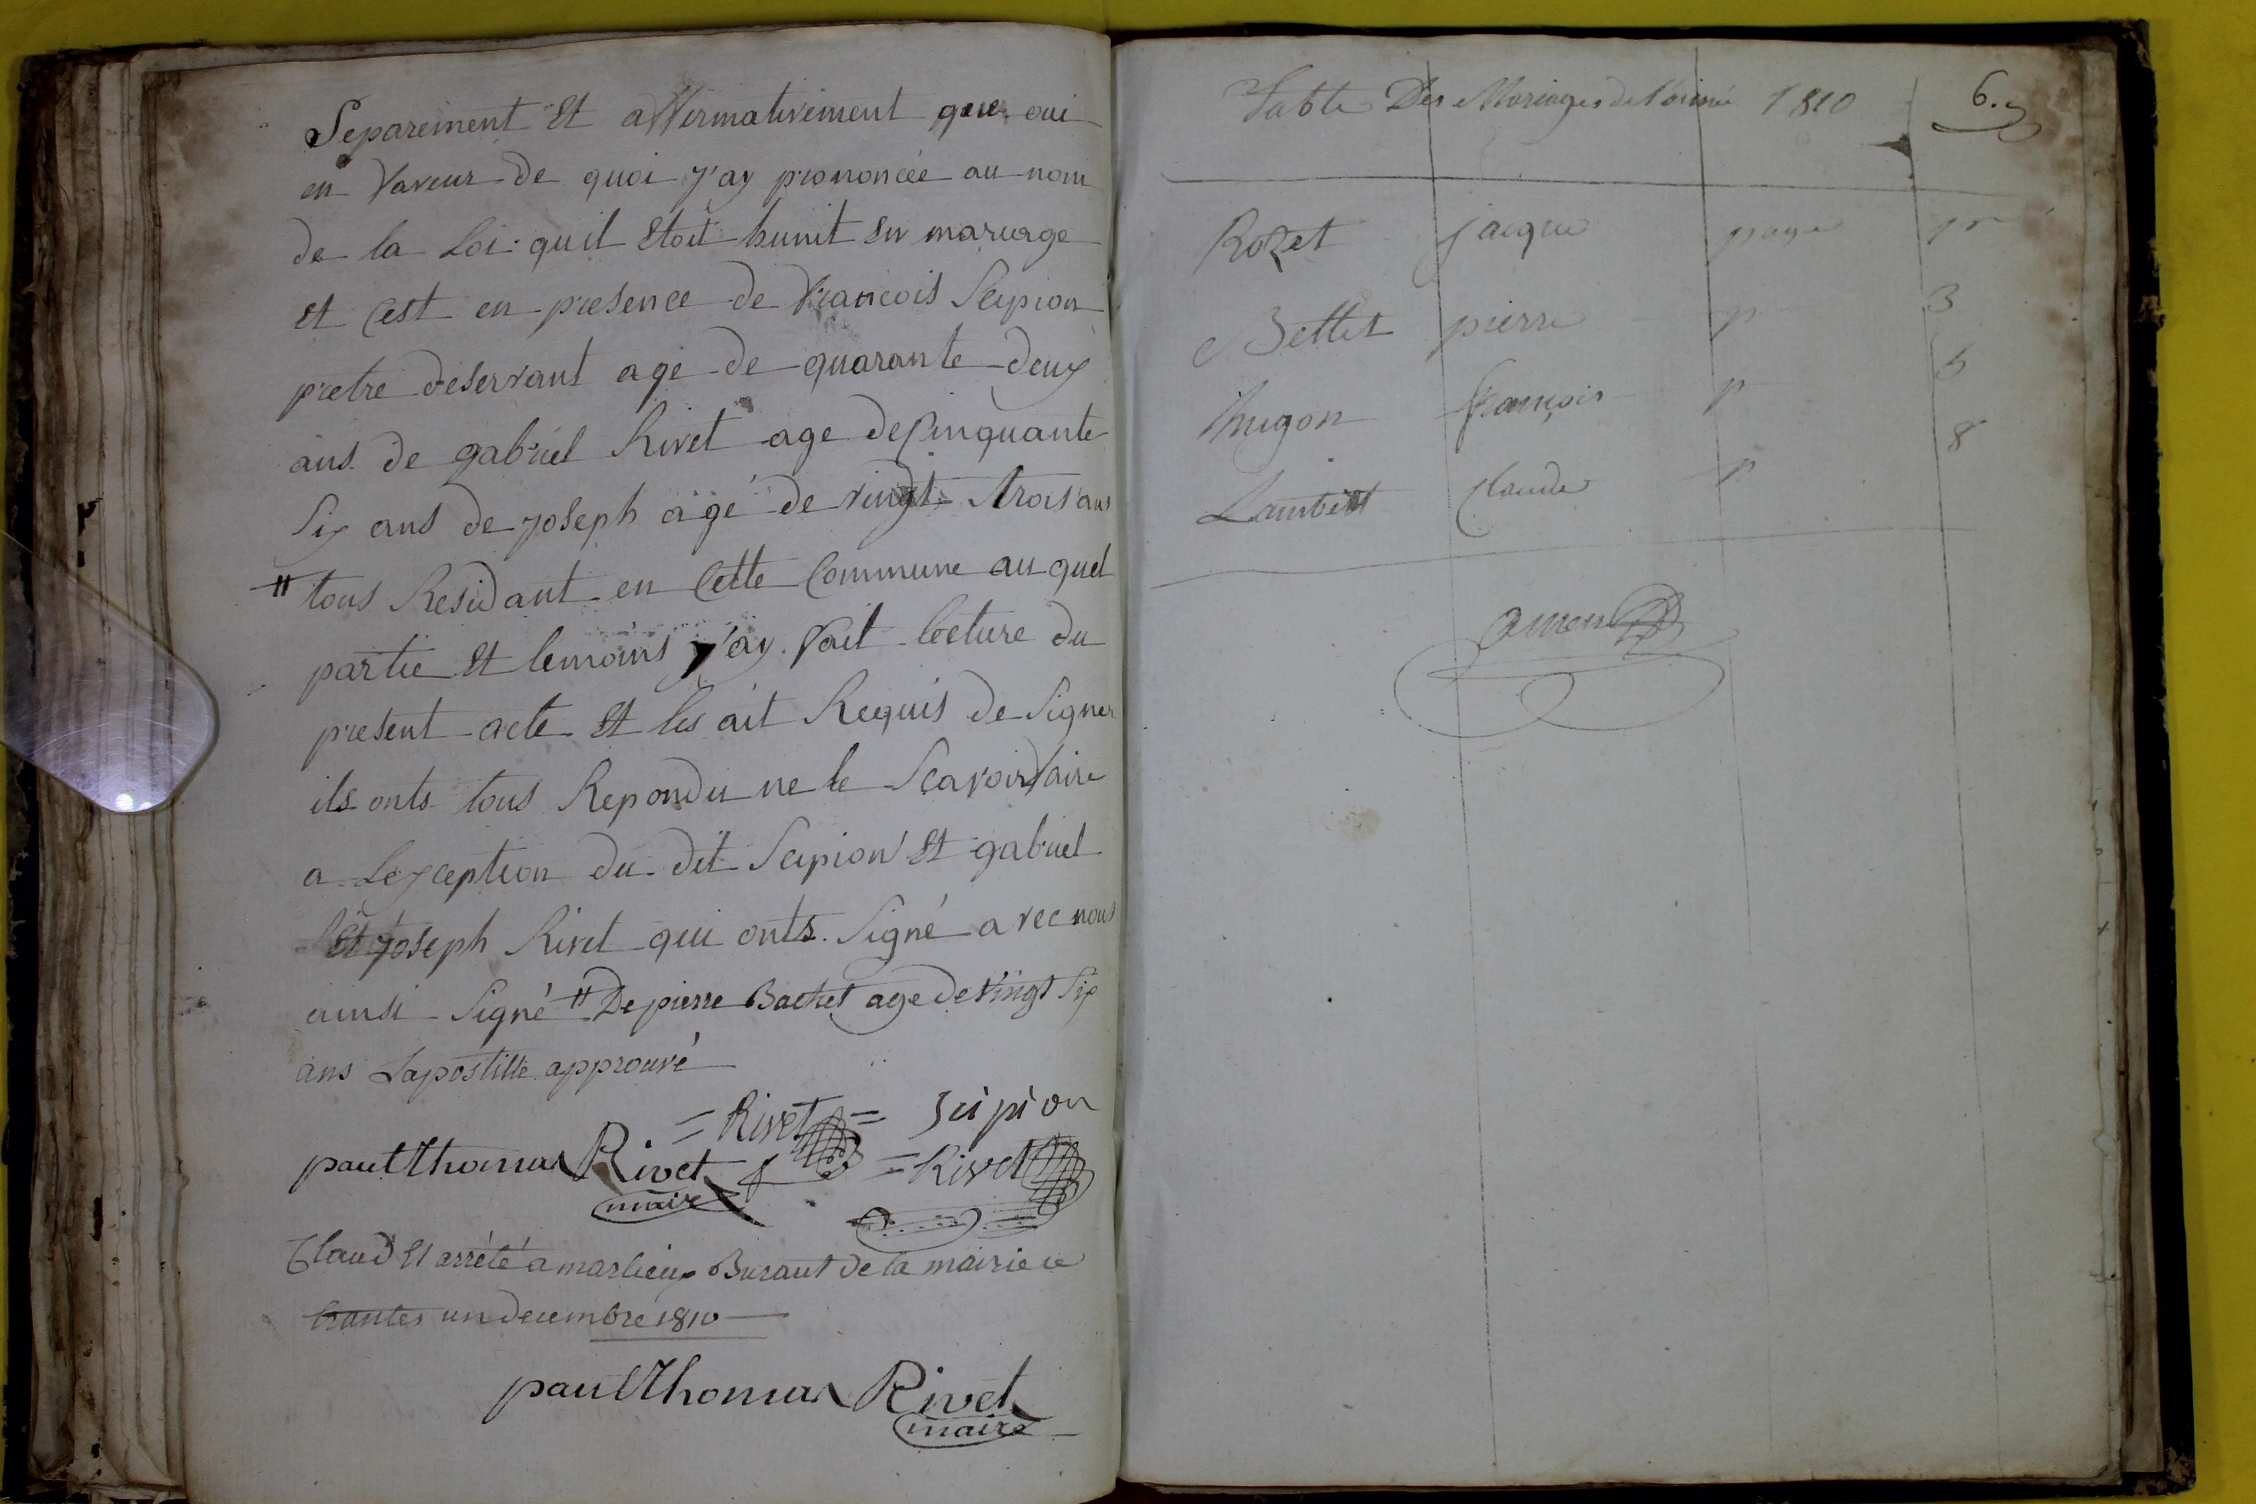 Separément Et affirmativement que oui
en faveur de quoi j'ay prononcée au nom
de la Loi quil Etoit hunit En mariage
et Cest en presence de francois Scipion
pretre deservant age de quarante deux
ans de gabriel Rivet age de Cinquante
Six ans de joseph agé de vingt trois ans
" tous Residant en Cette Commune au quel
partie Et temoins j'ay fait lecture du
present acte Et les ait Requis de Signer
ils onts tous Repondu ne le Scavoir faire
a Lexception du dit Scipion Et gabriel
Et joseph Rivet qui onts Signé avec nous
ainsi Signé " De pierre Bachet age de vingt Six
ans Lapostille approuvé
= Rivet = Scipion
paul Thomas Rivet = Rivet
maire
Claud Et arrété a marlieux Buraut de la mairie ce
trantes un decembre 1810
paul Thomas Rivet
maire
Table Des Mariages de l'année 1810 6.
Rozet jacque page pr
Bettet pierre p 3
hugon françois p 5
Lambert Claude p 8